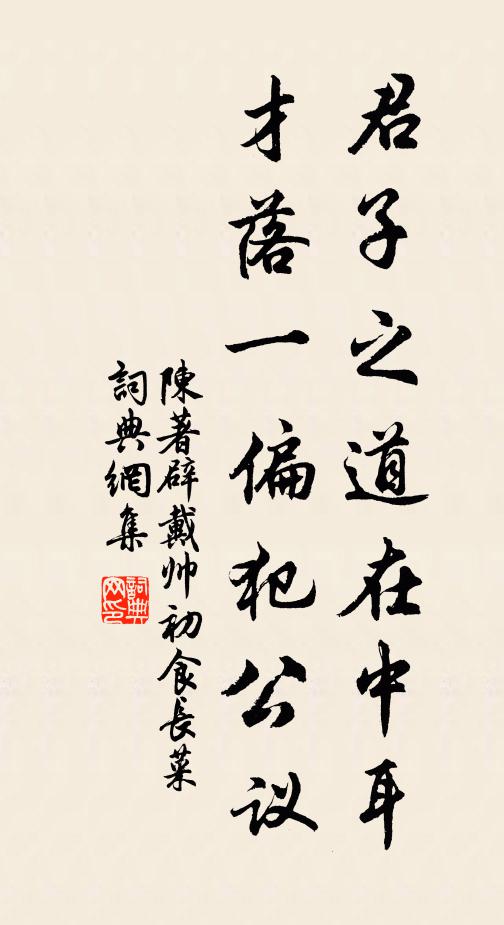 君子之道在中耳
才落一偏犯公议
陳著辟戴帅初食長菜
詞典網集
詞典
网印